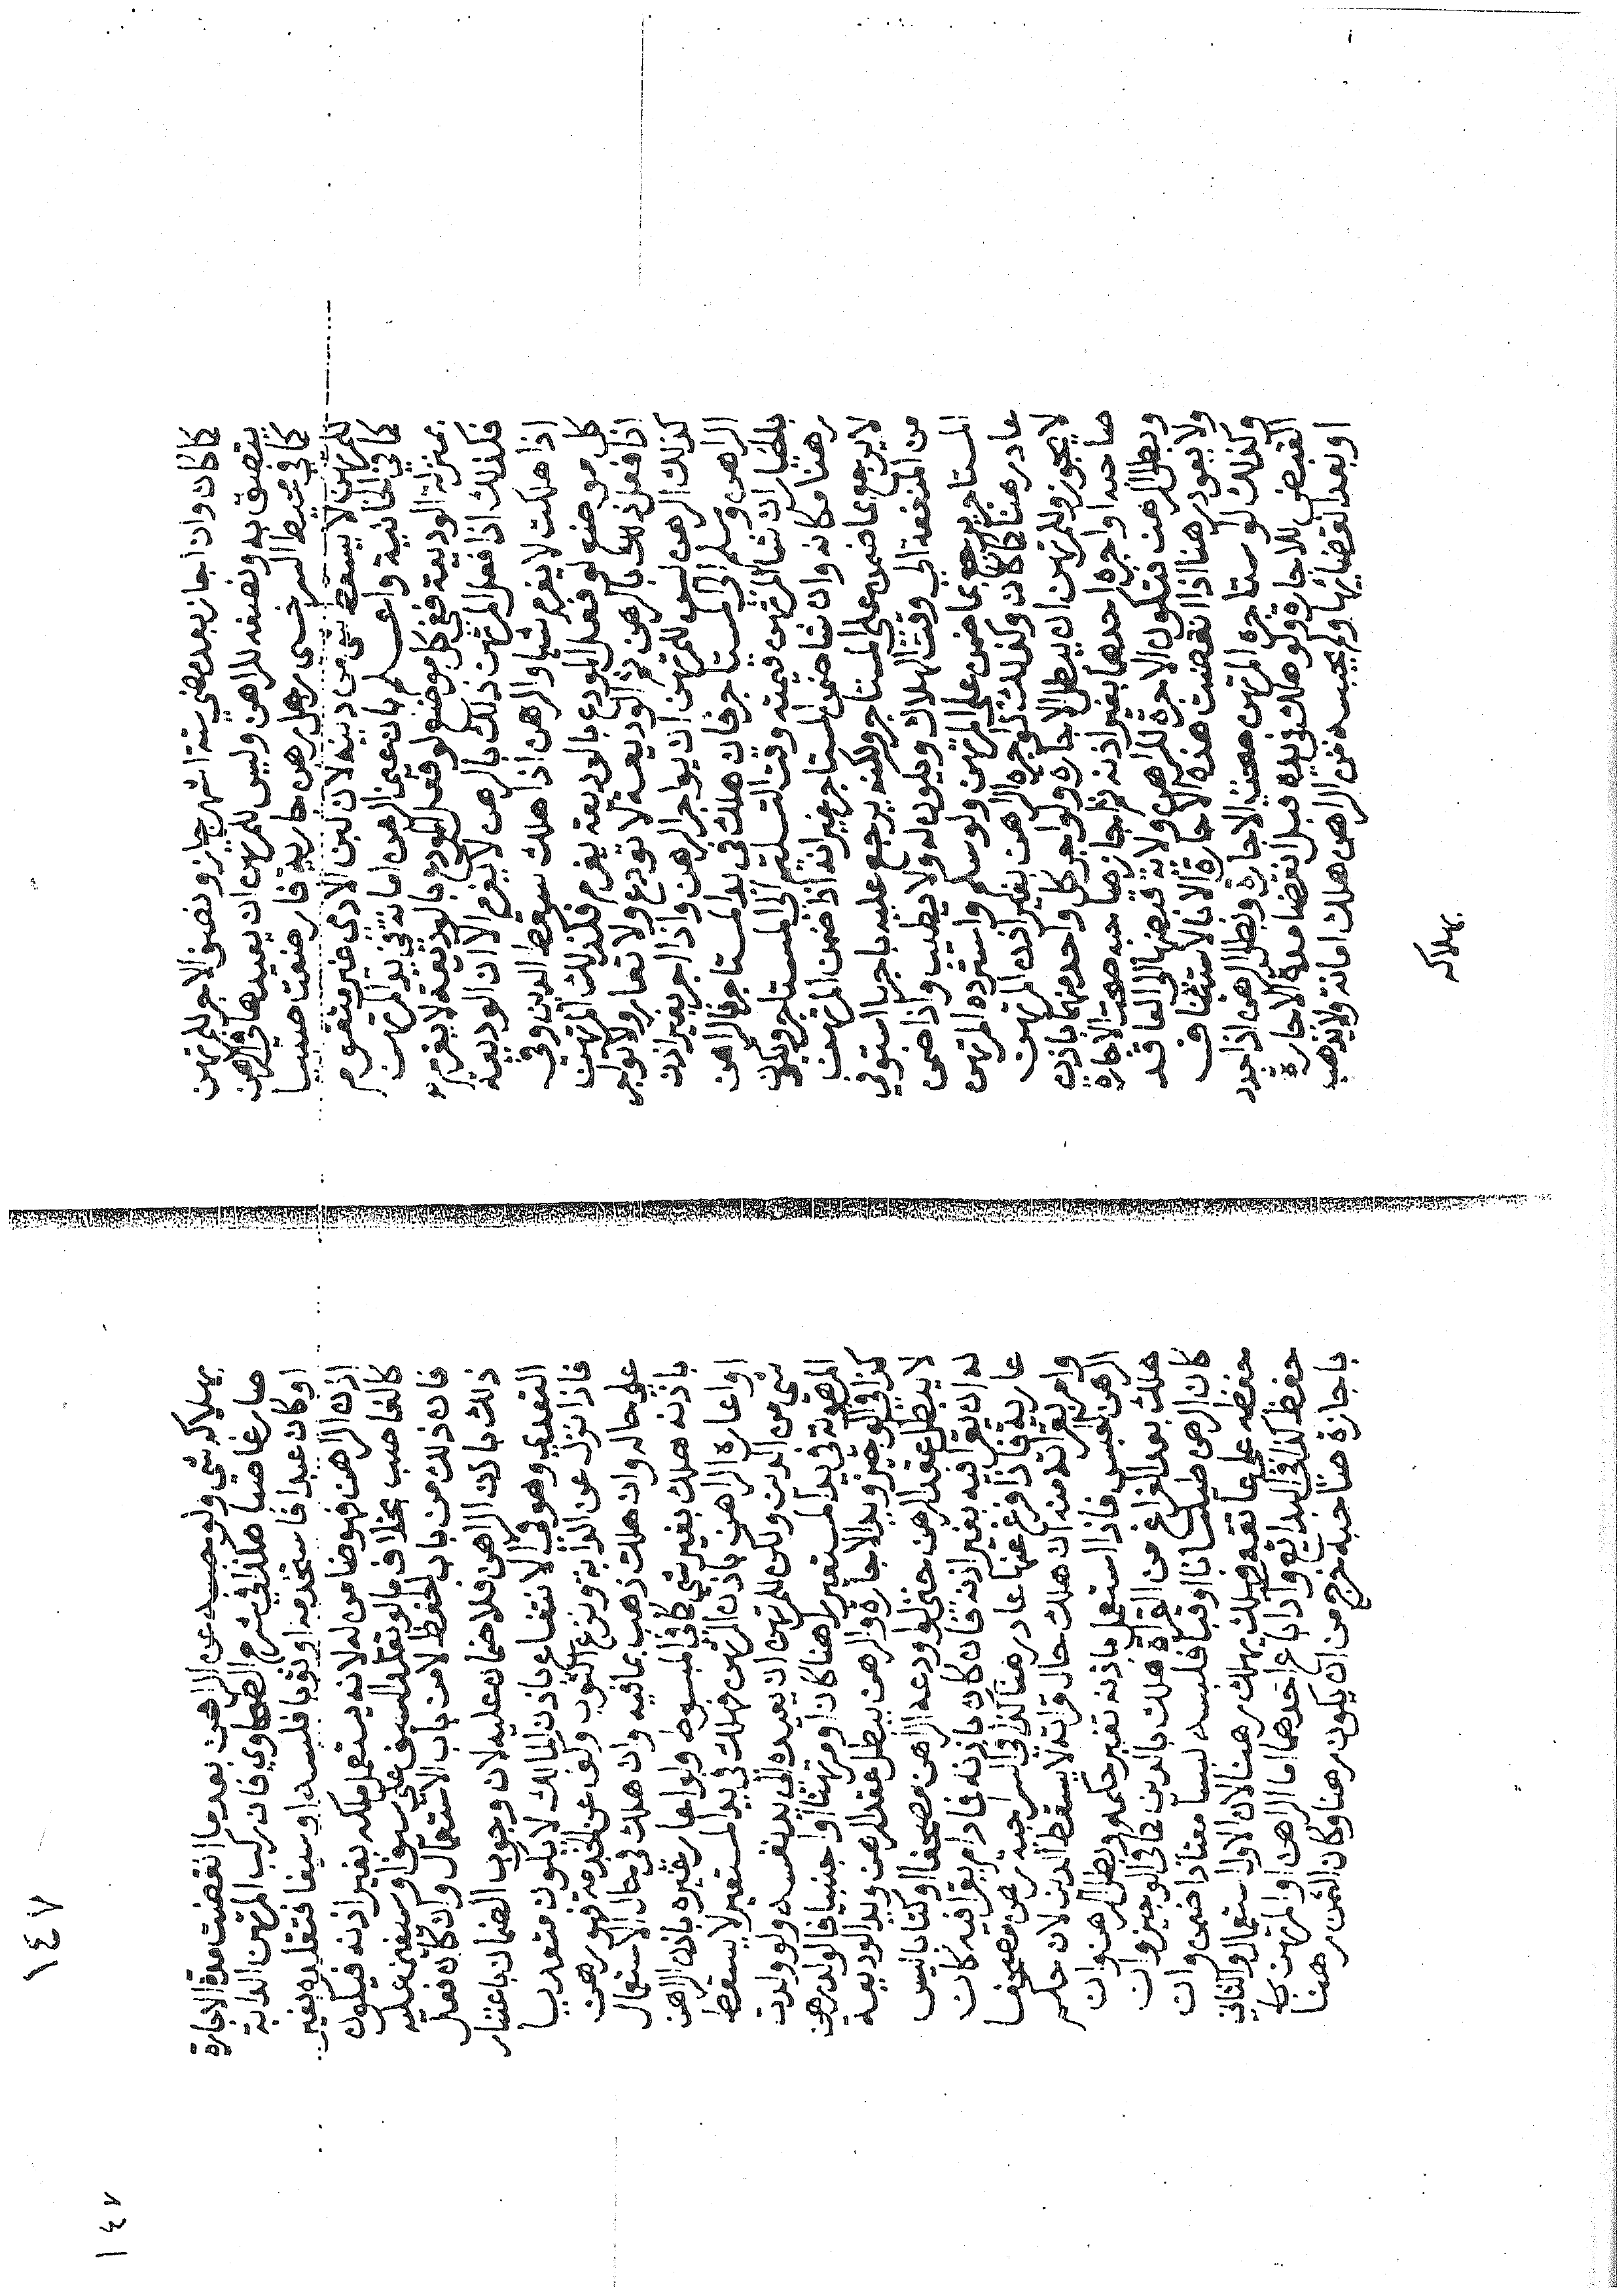 كما كان وان اجاز بعد مضي ستة اشهر جاز ونصف الاجر للمرتهن
يتصدق به ونصفه للراهن وليس للمرتهن ان يعيدها في الرهن
كما في محيط السرخسي رجل رهن جارية فارضعت صبيا
للمرتهن لا يسقط شي من دينه لان لبن الادمي غير متقوم
كما في الخانية واعلم بان عين الرهن امانة في يد المرتهن
بمنزلة الوديعة ففي كل موضع لو فعل المودع بالوديعة لا يغرم
فكذلك اذا فعل المرتهن ذلك بالرهن لا يغرم الا ان الوديعة
اذا هلكت لا يغرم شيا والرهن اذا هلك سقط الدين وفي
كل موضع لو فعل المودع بالوديعة يغرم فكذلك المرتهن
اذا فعل ذلك بالرهن ثم الوديعة لا تودع ولا تعار ولا تواجر
كذلك الرهن ليس للمرتهن ان يواجر الرهن واذا اجر بغير اذن
الراهن وسلم الى المستاجر فان هلك في يد المستاجر فالراهن
بالخيار ان شا ضمن المرتهن قيمته وقت التسليم الى المستاجر ويكون
رهنا مكانه وان شا ضمن المستاجر غير انه اذا ضمن المرتهن
لا يرجع بما ضمن على المستاجر ولكنه يرجع عليه باجر ما استوفى
من المنفعة الى وقت الهلاك ويكون له ولا يطيب واذا ضمن
المستاجر يرجع بما ضمن على المرتهن ولو سلم واسترده المرتهن
عاد رهنا كما كان وكذلك لو اجره الراهن بغير اذن المرتهن
لا يجوز وللمرتهن ان يبطل الاجارة ولو اجر كل واحد منهما باذن
صاحبه او اجره احدهما بغير اذنه ثم اجاز صاحبه صحت الاجارة
وبطل الرهن فتكون الاجرة للراهن وولاية قبضها الى العاقد
ولا يعود رهنا اذا انقضت هذه الاجارة الا بالاستيناف
وكذلك لو استاجره المرتهن صحت الاجارة وبطل الرهن اذا جدد
القبض للاجارة ولو هلك في يده قبل انقضا مدة الاجارة
او بعد انقضايها ولم يحبسه من الراهن هلك امانة ولا يذهب
بهلاكه
١٤٧
١٤٧
بهلاكه شي ولو حبسه عن الراهن بعد ما انقضت مدة الاجارة
صار غاصبا هكذا في شرح الطحاوي فان ركب المرتهن الدابة
او كان عبدا فاستخدمه او ثوبا فلبسه او سيفا فتقلده بغير
اذن الراهن فهو ضامن له لانه يستعمل ملكه بغير اذنه فيكون
كالغاصب بخلاف ما لو تقلد السيف على سيف او سيفين عليه
فان ذلك من باب الحفظ لا من باب الاستعمال وان كان فعل
ذلك باذن الراهن فلا ضمان عليه لان وجوب الضمان باعتبار
التعدي وهو في الانتفاع باذن المالك لا يكون متعديا
فاذا نزل عن الدابة ونزع الثوب وكف عن الخدمة فهو رهن
على حاله وان هلك ذهب بما فيه وان هلك في حال الاستعمال
باذنه هلك بغير شي كما في المبسوط ولو اعار غيره باذن الراهن
او اعاره الراهن باذن المرتهن فهلك في يد المستعير لا يسقط
شي من الدين ولكن للمرتهن ان يعيده الى يد نفسه ولو ولدت
المرهونة في يد المستعير راهنا كان او مرتهنا او اجنبيا فالولد رهن
كذا في الوجيز ويد الاجارة والرهن يبطل عقد الرهن ويد الوديعة
لا يبطل عقد الرهن حتى لو اودعه الراهن مصحفا او كتابا ليس
له ان يقرا فيه بغير اذنه فان كان باذنه فما دام يقرا فيه كان
عارية فاذا فرغ عنها عاد رهنا كذا في السراجية رهن مصحفا
وامر بقراته منه ان هلك حال قراته لا يسقط الدين لان حكم
الرهن الحبس فاذا استعمل باذنه تغير حكمه وبطل الرهن وان
هلك بعد الفراغ من القراة هلك بالدين كما في الوجيز وان
كان الرهن طيلسانا او قبا فلبسه لبسا معتادا ضمن وان
حفظه على عاتقه فهلك يهلك رهنا لان الاول استعمال والثاني
حفظ كذا في البدايع واذا باع احدهما اما الراهن او المرتهن
باجازة صاحبه خرج من ان يكون رهنا وكان الثمن رهنا